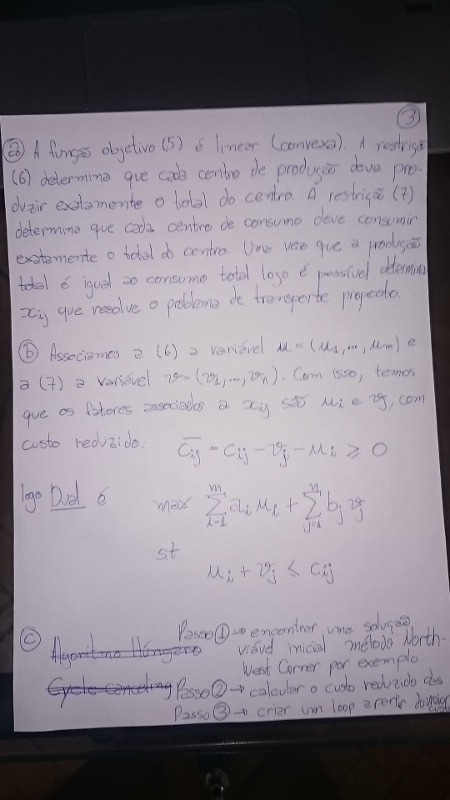 ③
ⓐ A função objetivo (5) é linear (convexa). A restrição
(6) determina que cada centro de produção deve pro-
duzir exatamente o total do centro. A restrição (7)
determina que cada centro de consumo deve consumir
exatamente o total do centro. Uma vez que a produção
total é igual ao consumo total logo é possível determinar
xij que resolve o problema de transporte proposto.
ⓑ Associamos a (6) a variável u = (u1,..., um) e
a (7) a variável v = (v1,..., vn). Com isso, temos
que os fatores associados a xij são ui e vj, com
custo reduzido: c̄ij = cij - vj - ui ≥ 0
logo Dual é max Σ(i=1..m) ai ui + Σ(j=1..n) bj vj
st
ui + vj ≤ cij
ⓒ Passo ① → encontrar uma solução
Algoritmo Húngaro viável inicial método North-
West Corner por exemplo
Cycle canceling Passo ② → calcular o custo reduzido
Passo ③ → criar um loop a partir do